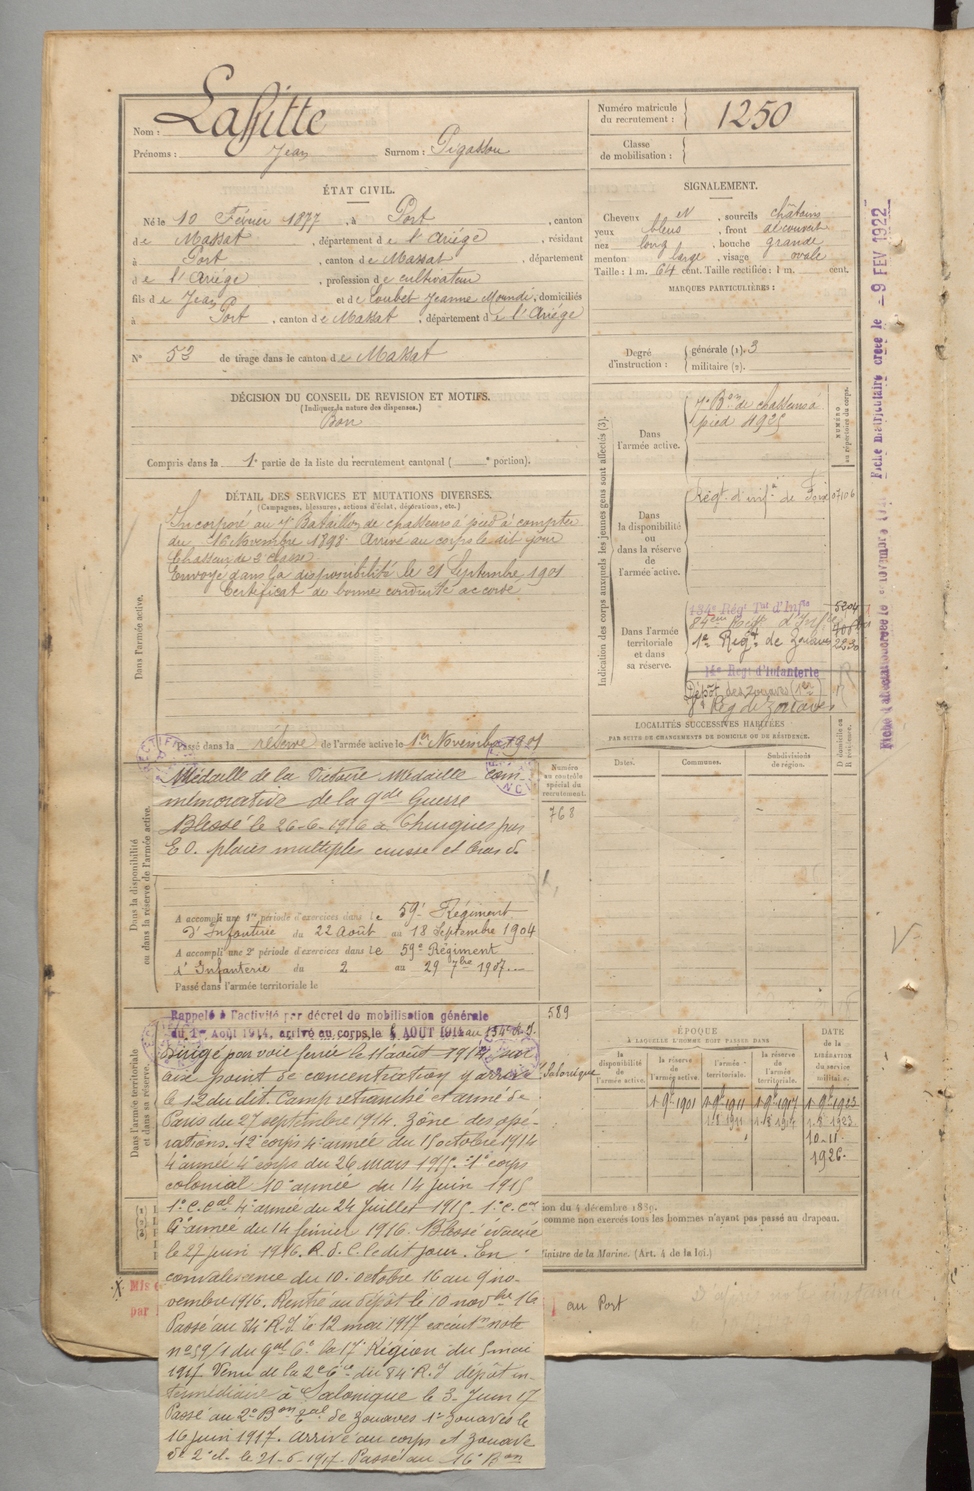 Nom : Laffitte
Prénoms : Jean Surnom : Pigassou
ÉTAT CIVIL.
Né le 10 Février 1877, à Port, canton
de Massat, département de l'Ariège, résidant
à Port, canton de Massat, département
de l'Ariège, profession de cultivateur
fils de Jean et de Loubet Jeanne Moundi, domiciliés
à Port, canton de Massat, département de l'Ariège
N° 53 de tirage dans le canton de Massat
DÉCISION DU CONSEIL DE REVISION ET MOTIFS.
(Indiquez la nature des dispenses.)
Bon
Compris dans la 1e partie de la liste du recrutement cantonal ( e portion).
DÉTAIL DES SERVICES ET MUTATIONS DIVERSES.
(Campagnes, blessures, actions d'éclat, décorations, etc.)
Dans l'armée active.
Incorporé au 7e Bataillon de chasseurs à pied à compter
du 16 Novembre 1898. Arrivé au corps le dit jour
Chasseur de 2e classe
Envoyé dans la disponibilité le 21 Septembre 1901
Certificat de bonne conduite accordé
Passé dans la réserve de l'armée active le 1er Novembre 1901
Dans la disponibilité
ou dans la réserve de l'armée active.
Médaille de la Victoire Médaille com-
mémorative de la gde Guerre
Blessé le 26-6-1916 à Thuizy par
E O. plaies multiples cuisse et bras d.
A accompli une 1re période d'exercices dans le 59e Régiment
d'Infanterie du 22 Août au 18 Septembre 1904
A accompli une 2e période d'exercices dans le 59e Régiment
d'Infanterie du 2 au 29 7bre 1907
Passé dans l'armée territoriale le
Dans l'armée territoriale
et dans sa réserve.
Rappelé à l'activité par décret de mobilisation générale
du 1er Août 1914, arrivé au corps le 4 AOUT 1914 au 134e R.I.
Dirigé par voie ferrée le 11 août 1914 sur
un point de concentration y arrivé
le 12 du dit. Camp retranché et armé de
Paris du 27 septembre 1914. Zône des opé-
rations. 12e corps 4e armée du 15 octobre 1914
4e armée 4e corps du 26 mars 1915. 1e corps
colonial 10e armée du 14 juin 1915
1e C. Cal 4e armée du 24 Juillet 1915. 1e C. Cal
6e armée du 14 février 1916. Blessé évacué
le 27 juin 1916. R. d. C. le dit jour. En
convalescence du 10 octobre 16 au 9 no-
vembre 1916. Rentré au dépôt le 10 novbre 16
Passé au 84e R.I. le 12 mai 1917 executon note
n° 59/1 du gal Ct la 17e Région du 5 mai
1917 Venu de la 2e Cie du 84e R.I dépôt in-
termédiaire à Salonique le 3 Juin 17
Passé au 2e Bon Cal de Zouaves 1er Zouaves le
16 juin 1917. Arrivé au corps et Zouave
de 2e cl. le 21-6-1917. Passé au 16e Bon
Salonique
Numéro
au contrôle
spécial du
recrutement.
768
589
Numéro matricule
du recrutement : 1250
Classe
de mobilisation :
SIGNALEMENT.
Cheveux et, sourcils châtains
yeux bleus, front découvert
nez long, bouche grande
menton large, visage ovale
Taille : 1 m. 64 cent. Taille rectifiée : 1 m. cent.
MARQUES PARTICULIÈRES :
Degré
d'instruction :
générale (1). 3
militaire (2).
Indication des corps auxquels les jeunes gens sont affectés (3).
NUMÉRO
au répertoire du corps.
Dans
l'armée active.
7e Bon de chasseurs à
pied 4925
Dans
la disponibilité
ou
dans la réserve
de
l'armée active.
Régt. d'infie de Foix 07106
Dans l'armée
territoriale
et dans
sa réserve.
134e Régt Tal d'Infie 5204
84ème Régt d'Infie
1er Régt de Zouaves 2230
14e Régt d'Infanterie
Dépôt des zouaves (1er)
Rég de Zouaves
LOCALITÉS SUCCESSIVES HABITÉES
PAR SUITE DE CHANGEMENTS DE DOMICILE OU DE RÉSIDENCE.
Dates.
Communes.
Subdivisions
de région.
D domicile ou
R résidence.
ÉPOQUE
À LAQUELLE L'HOMME DOIT PASSER DANS
la
disponibilité
de
l'armée active.
la réserve
de
l'armée active.
l'armée
territoriale.
la réserve
de
l'armée
territoriale.
DATE
de la
LIBÉRATION
du service
militaire.
1 9bre 1901
1 9bre 1911
1 9bre 1917
1 9bre 1923
1.8 1911
1.8 1917
1.8 1923
10-11
1926
ion du 4 décembre 1889.
comme non exercés tous les hommes n'ayant pas passé au drapeau.
Ministre de la Marine. (Art. 4 de la loi.)
Mis
par
au Port
Fiche matriculaire créée le - 9 FEV 1922